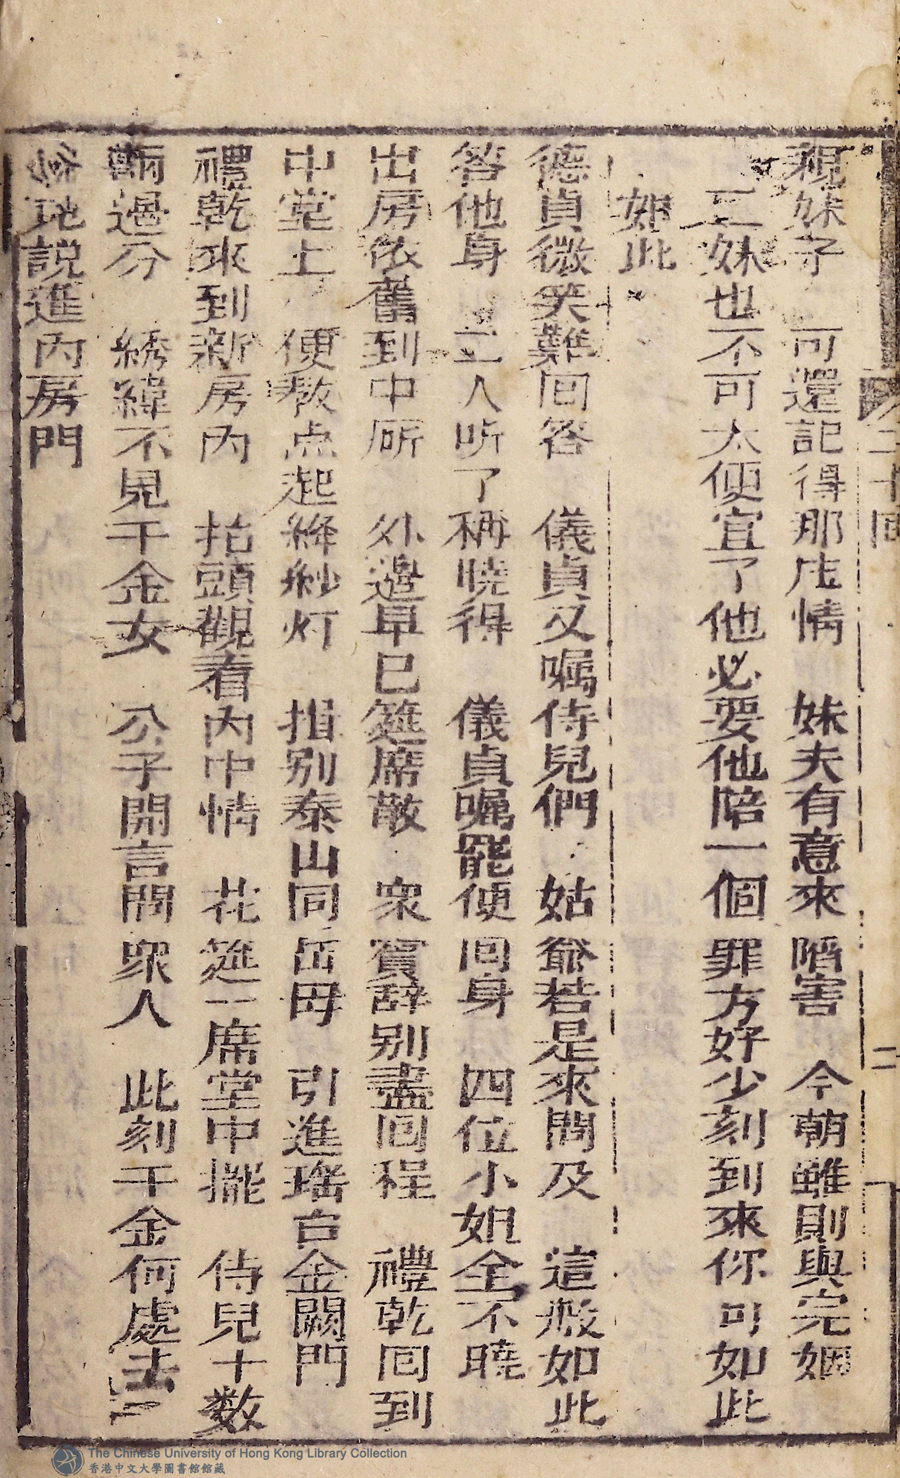 二十回
二
親妹子 可還記得那庄情 妹夫有意來陷害 今朝雖則與完姻
三妹也不可太便宜了他必要他陪一個罪方好少刻到來你可如此
如此
德貞微笑難回答 儀貞又嘱侍兒們 姑爺若是來問及 這般如此
答他身 二人听了称曉得 儀貞嘱罷便回身 四位小姐全不曉
出房依舊到中所 外邊早已筵席散 衆賓辞别盡回程 禮乾回到
中堂上 便教点起絳紗灯 揖别泰山同岳母 引進瑤台金闕門
禮乾來到新房内 抬頭觀看内中情 花筵一席堂中擺 侍兒十数
過分 綉緯不見千金女 公子開言問衆人 此刻千金何處去
地説進内房門
The Chinese University of Hong Kong Library Collection
香港中文大學圖書館館藏